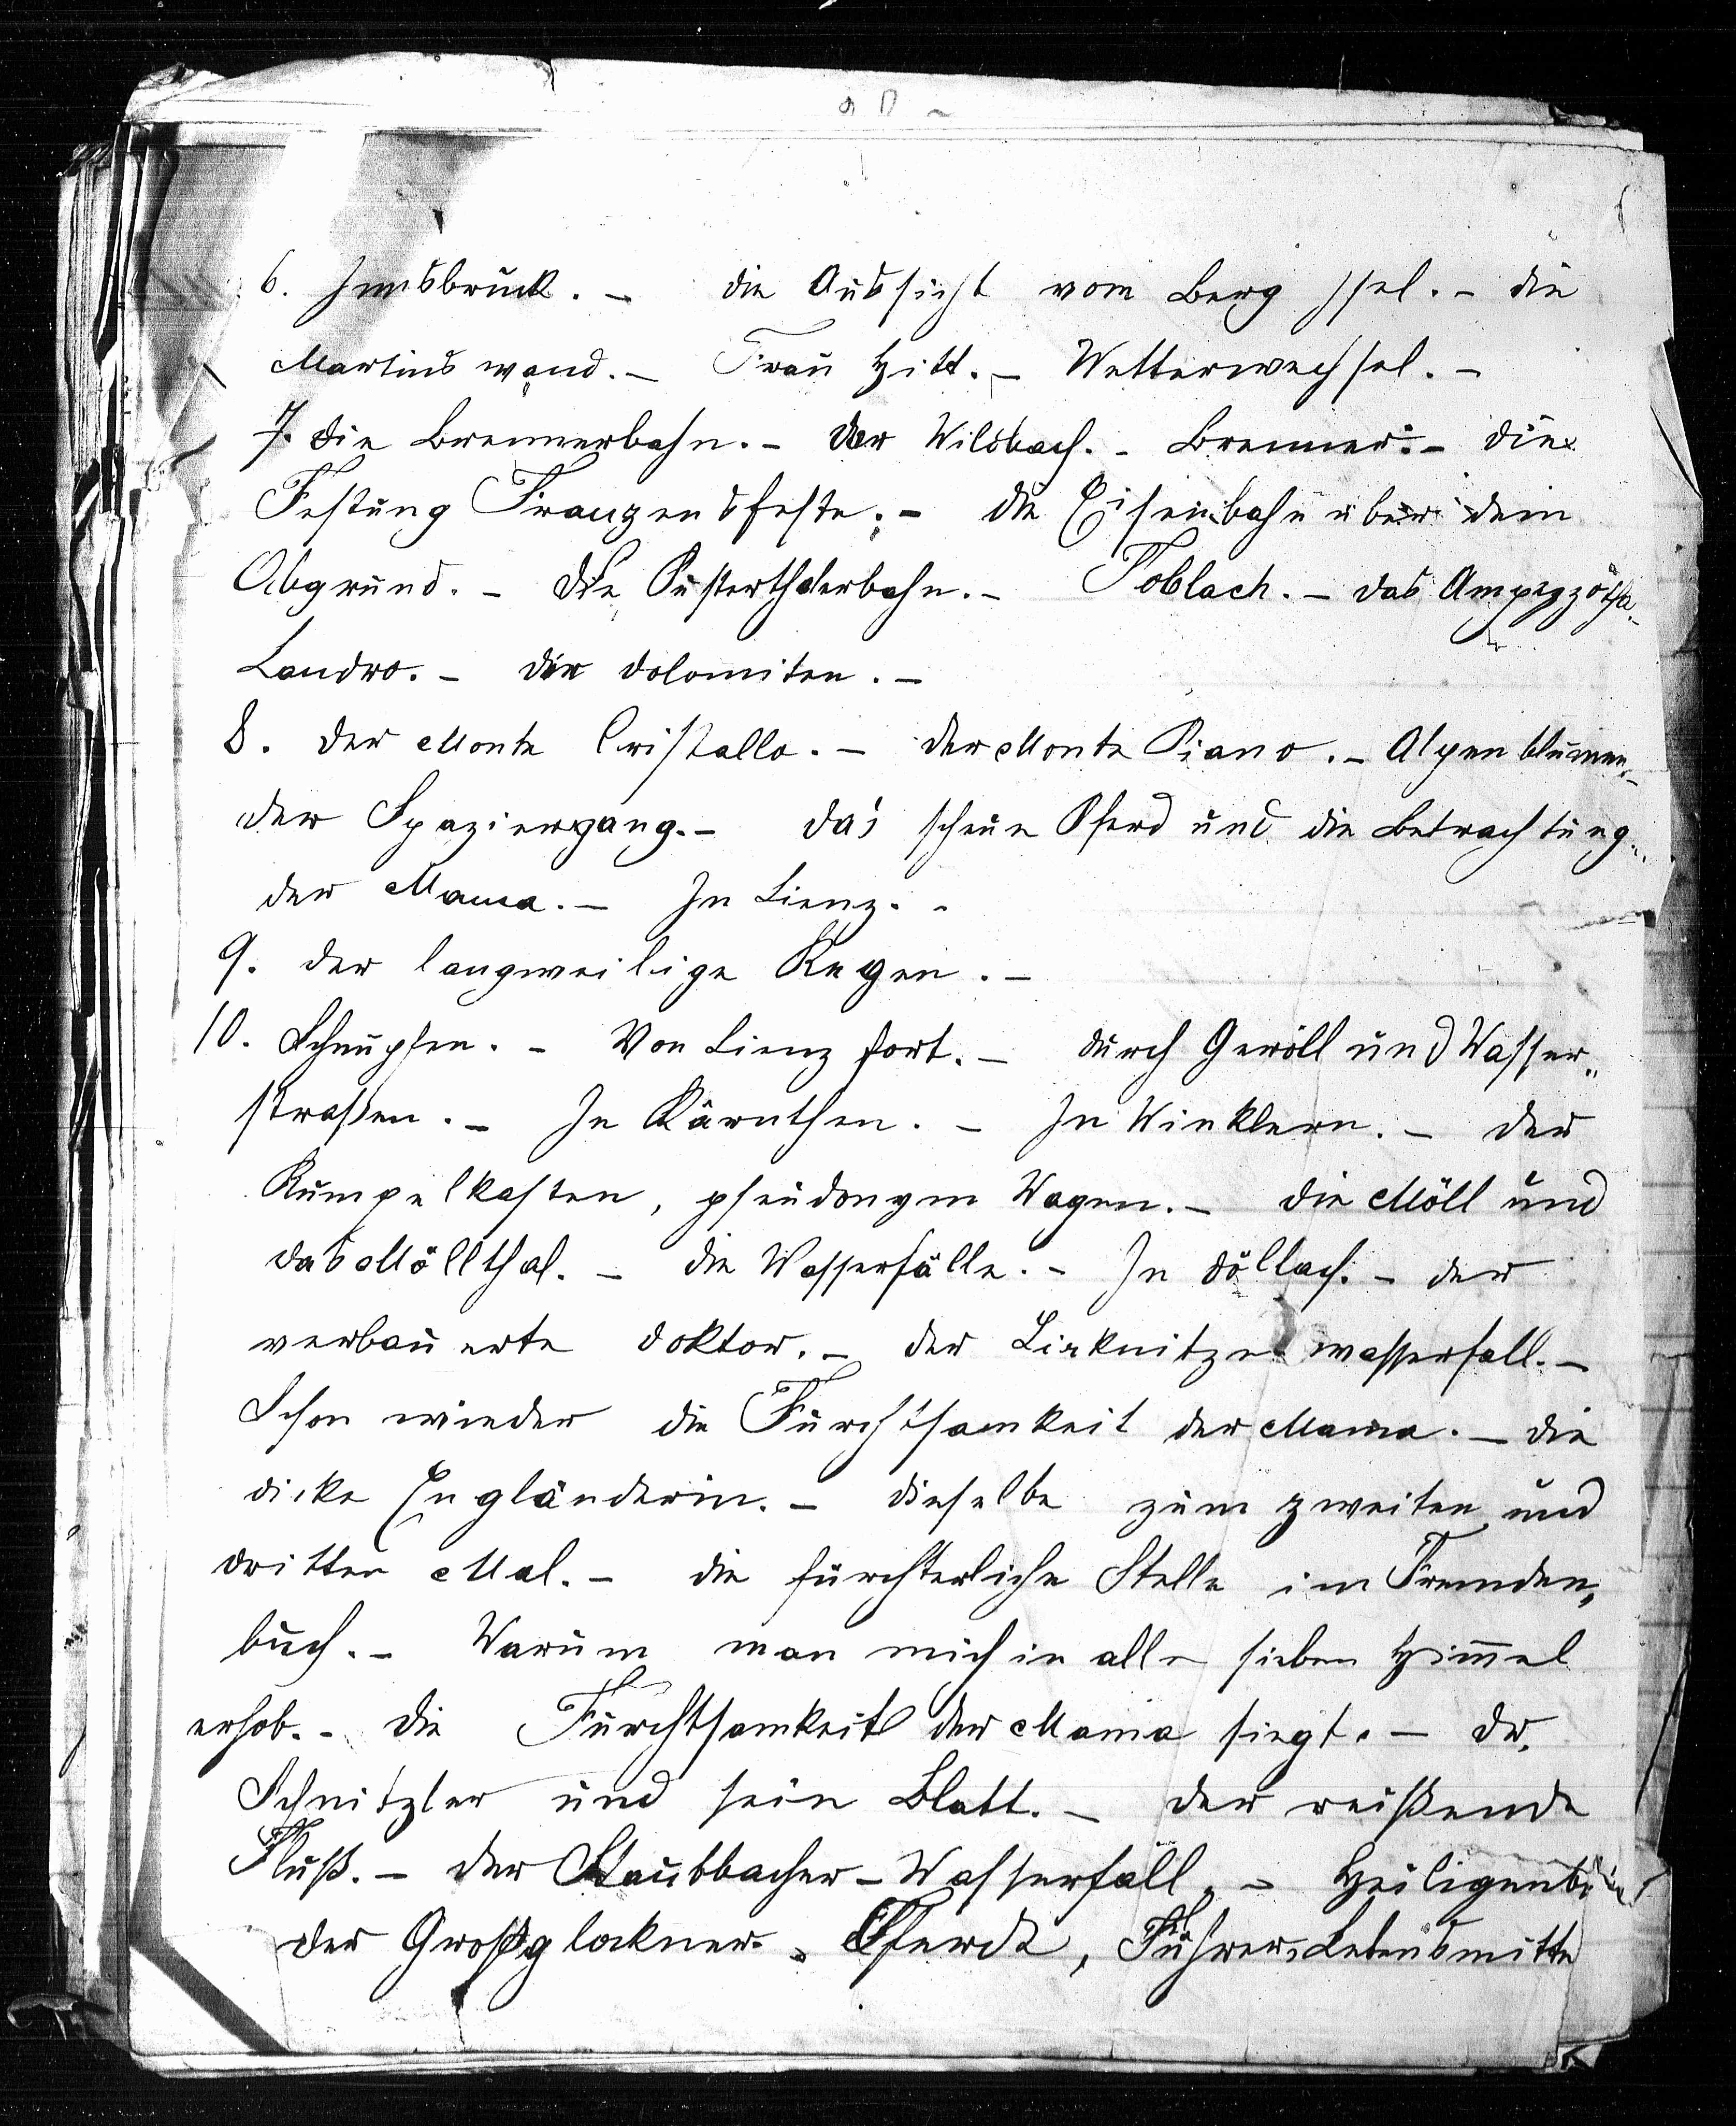 6. Innsbruck. – die Aussicht vom Berg Isel. – die
Martinswand. – Frau Hitt. – Wetterwechsel. –
7. die Brennerbahn. – der Wildbach. – Brenner. – die
Festung Franzensfeste. – die Eisenbahn über dem
Abgrund. – die Pusterthalerbahn. – Toblach. – das
Landro. – die Dolomiten. –
8. der Monte Cristallo. – der Monte Piano. – Alpenblumen. –
der Spaziergang. – das scheue Pferd und die Betrachtung
der Mama. – In Lienz. –
9. der langweilige Regen. –
10. Schnupfen. – Von Lienz fort. – durch Geröll und Wasser„
straßen. – In Kärnthen. – In Winklern. – der
Rumpelkasten, pseudonym Wagen. – die Möll und
das Möllthal. – die Wasserfälle. – In Döllach. – der
verbauerte Doktor. – der Zirknitzer wasserfall. –
Schon wieder die Furchtsamkeit der Mama. – die
dicke Engländerin. – dieselbe zum zweiten und
dritten Mal. – die fürchterliche Stelle im Fremden„
buch. – Warum man mich in alle sieben Himmel
erhob. – die Furchtsamkeit der Mama siegt. – Dr.
Schnitzler und sein Blatt. – der reißende
Fluß. – der Staubbacher-Wasserfall. –
der Großglockner. Pferde, Führer, Lebensmitte